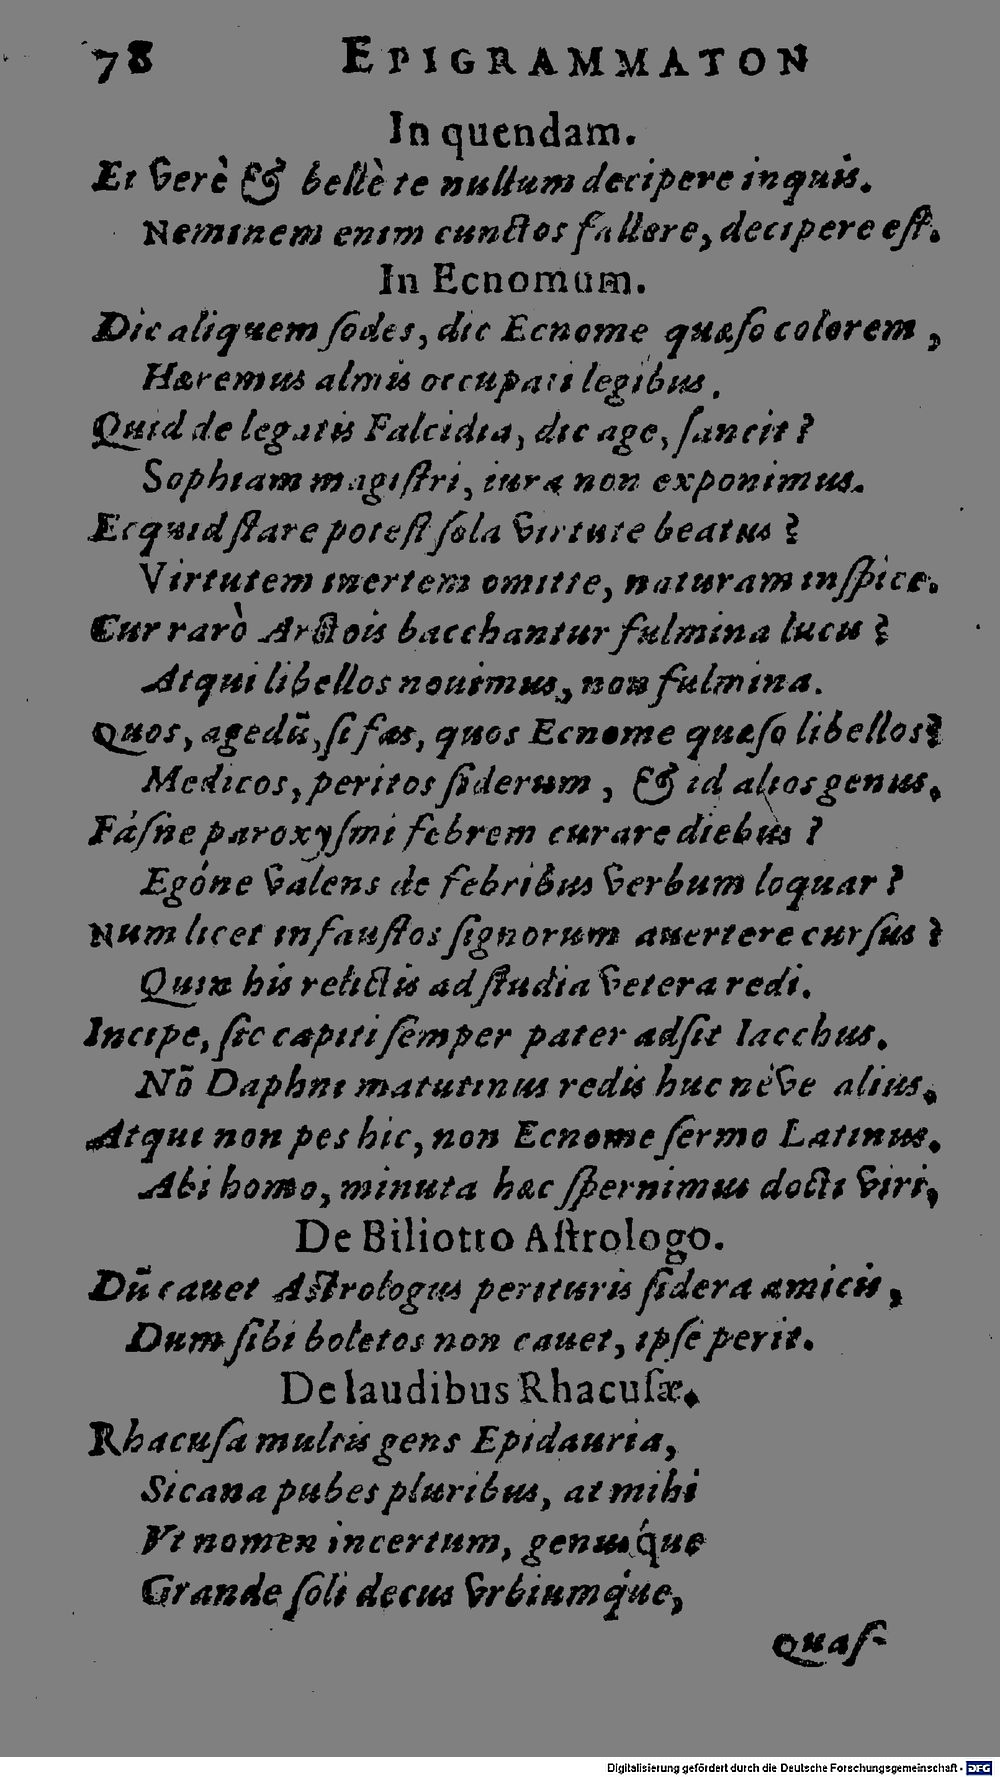 78 EPIGRAMMATON
In quendam.
Et verè & bellè te nullum decipere inquis.
Neminem enim cunctos fallere, decipere eſt.
In Ecnomum.
Dic aliquem ſodes, dic Ecnome quæſo colorem,
Hæremus almis occupati legibus.
Quid de legatis Falcidia, dic age, ſancit?
Sophiam magiſtri, iura non exponimus.
Ecquid ſtare poteſt ſola virtute beatus?
Virtutem inertem omitte, naturam inſpice.
Cur rarò Arctois bacchantur fulmina lucis?
Atqui libellos nouimus, non fulmina.
Quos, agedū, ſi fas, quos Ecnome quæſo libellos?
Medicos, peritos ſiderum, & id alios genus.
Fáſne paroxyſmi febrem curare diebus?
Egóne valens de febribus verbum loquar?
Num licet infauſtos ſignorum auertere curſus?
Quin his relictis ad ſtudia vetera redi.
Incipe, ſic capiti ſemper pater adſit Iacchus.
Nō Daphni matutinus redis huc néve alius.
Atqui non pes hic, non Ecnome ſermo Latinus.
Abi homo, minuta hæc ſpernimus docti viri,
De Biliotto Aſtrologo.
Dū cauet Aſtrologus perituris ſidera amicis,
Dum ſibi boletos non cauet, ipſe perit.
De laudibus Rhacuſæ.
Rhacuſa multis gens Epidauria,
Sicana pubes pluribus, at mihi
Vt nomen incertum, genuśque
Grande ſoli decus vrbiumq́ue,
Quaſ-
Digitalisierung gefördert durch die Deutsche Forschungsgemeinschaft - DFG